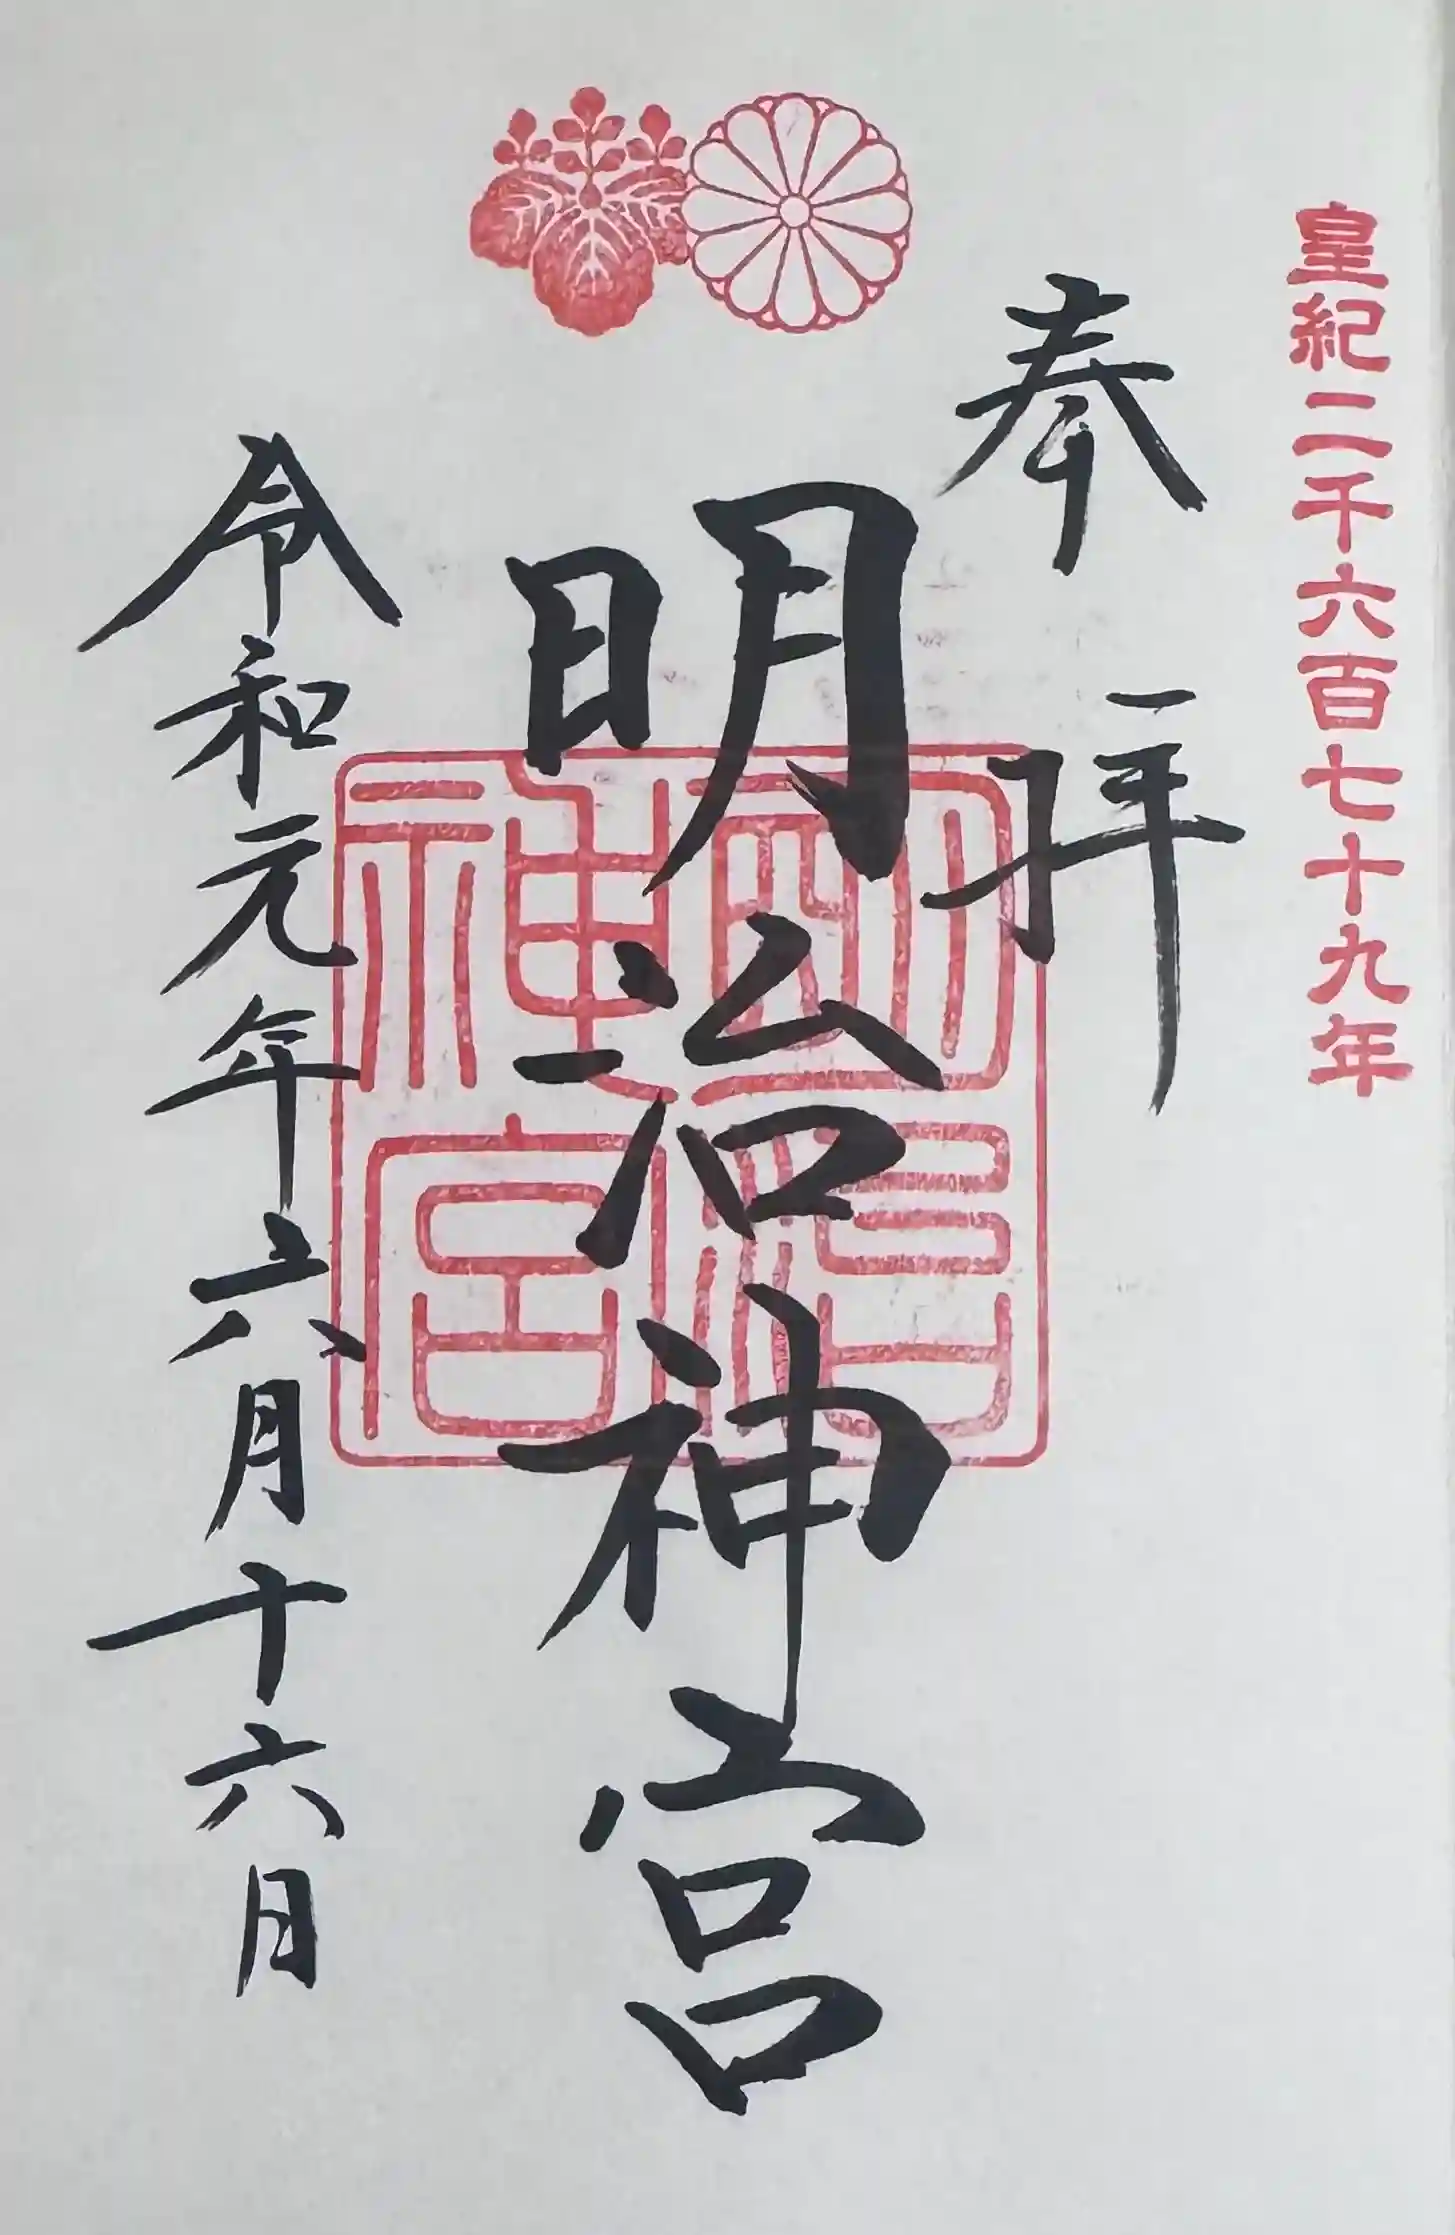 皇紀二千六百七十九年
奉拝
明治神宮
明治
神宮
令和元年六月十六日